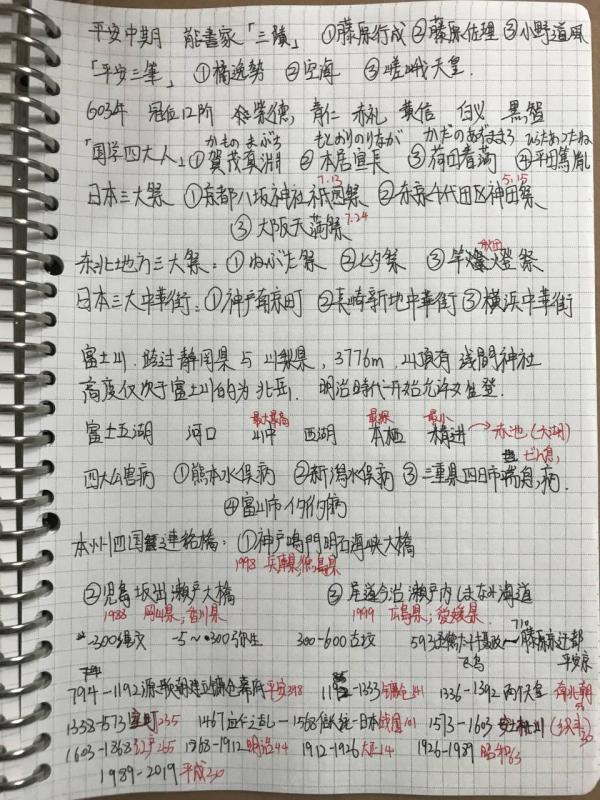 平安中期 能書家「三蹟」 ①藤原行成 ②藤原佐理 ③小野道風
「平安三筆」 ①橘逸勢 ②空海 ③嵯峨天皇.
603年 冠位12阶 紫德, 青仁 赤礼 黄信 白义 黒智
かものまぶち もとおりのりなが かだのあずままろ ひらたあつたね
「国学四大人」①賀茂真淵 ②本居宣長 ③荷田春満 ④平田篤胤
7.13 5.15
日本三大祭 ①京都八坂神社祇園祭 ②东京千代田区神田祭
③大阪天満祭 7.24
秋田
东北地方三大祭:①ねぶた祭 ②七夕祭 ③竿燈祭
日本三大中華街:①神戸南京町 ②長崎新地中華街 ③横浜中華街
富士山. 跨过静岡県与山梨県, 3776m, 山頂有浅間神社
高度仅次于富士山的为北岳. 明治時代开始允许女性登.
最大最高 最深 最小
富士五湖 河口 山中 西湖 本栖 精进 →赤池(大湖)
ぜん息,
四大公害病 ①熊本水俣病 ②新潟水俣病 ③三重県四日市喘息病.
④富山市イタイイタイ病
本州-四国連絡橋:①神戸鳴門明石海峡大橋
1998 兵庫県;徳島県
②児島坂出瀬戸大橋 ③尾道今治瀬戸内しまなみ海道
1988 岡山県;香川県 1999 広島県;愛媛県
~-300绳文 -5~300弥生 300-600古坟 593 710 藤原京迁都
飞鸟 平安京
794-1192源頼朝建立镰仓幕府平安398 1333镰仓141 1336-1392两个天皇 南北朝
1338-1573室町235 1467应仁之乱-1568 日本战国101 1573-1603安土桃山 30
1603-1868江户265 1868-1912明治44 1912-1926大正14 1926-1989昭和63
1989-2019平成30